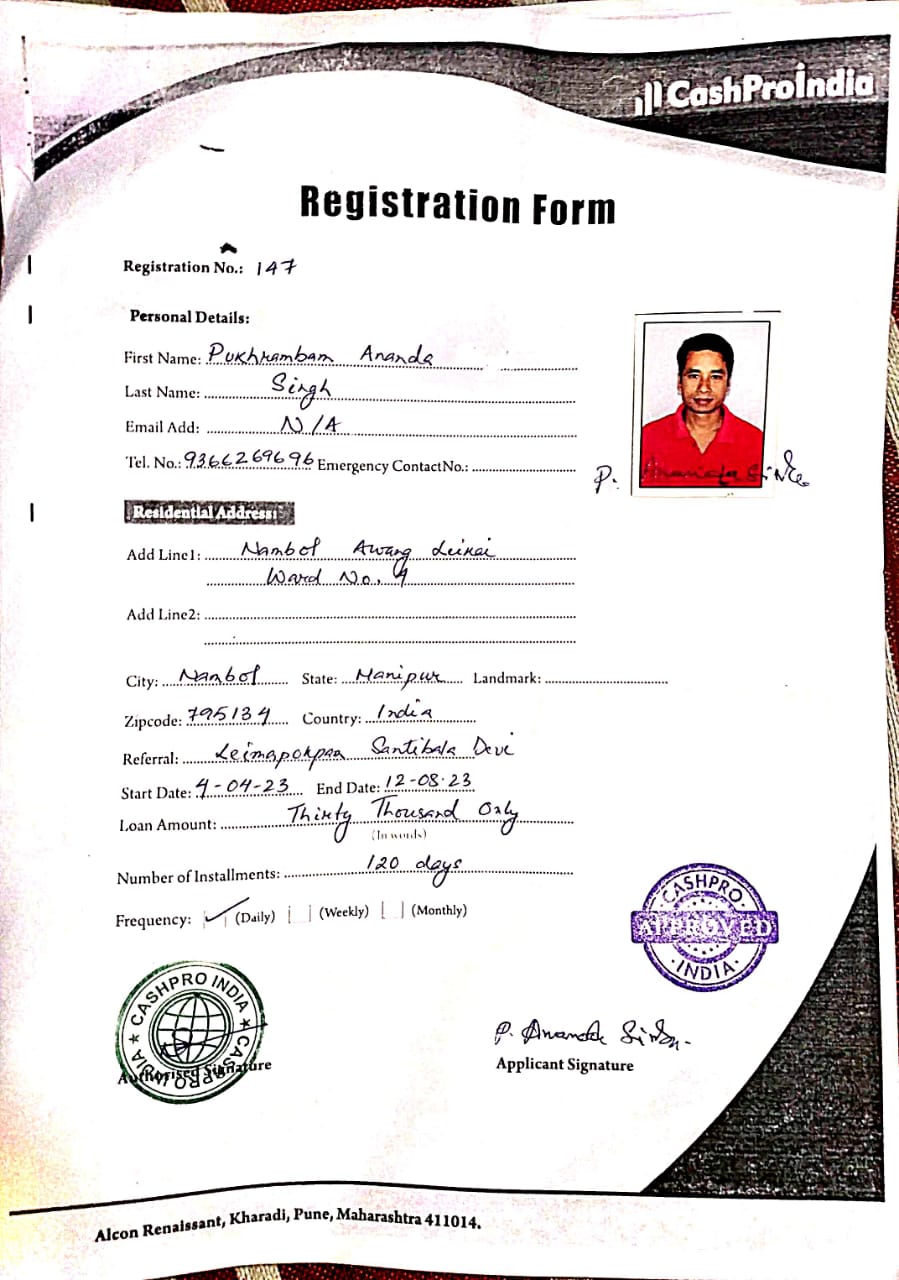 CashProIndia
Registration Form
Registration No.: 147
Personal Details:
First Name: Pukhrambam Ananda
Last Name: Singh
Email Add: N/A
Tel. No.: 9366269696 Emergency ContactNo.:
P. Ananda Singh
Residential Address:
Add Line1: Nambol Awang Leikai
Ward No. 9
Add Line2:
City: Nambol State: Manipur Landmark:
Zipcode: 795134 Country: India
Referral: Leimapokpam Santibala Devi
Start Date: 9-04-23 End Date: 12-08-23
Loan Amount: Thirty Thousand Only
(In words)
Number of Installments: 120 days
Frequency: ✓ (Daily) (Weekly) (Monthly)
CASHPRO
APPROVED
INDIA
CASHPRO INDIA ★ CASHPRO INDIA ★
Authorised Signature
P. Ananda Singh
Applicant Signature
Alcon Renaissant, Kharadi, Pune, Maharashtra 411014.